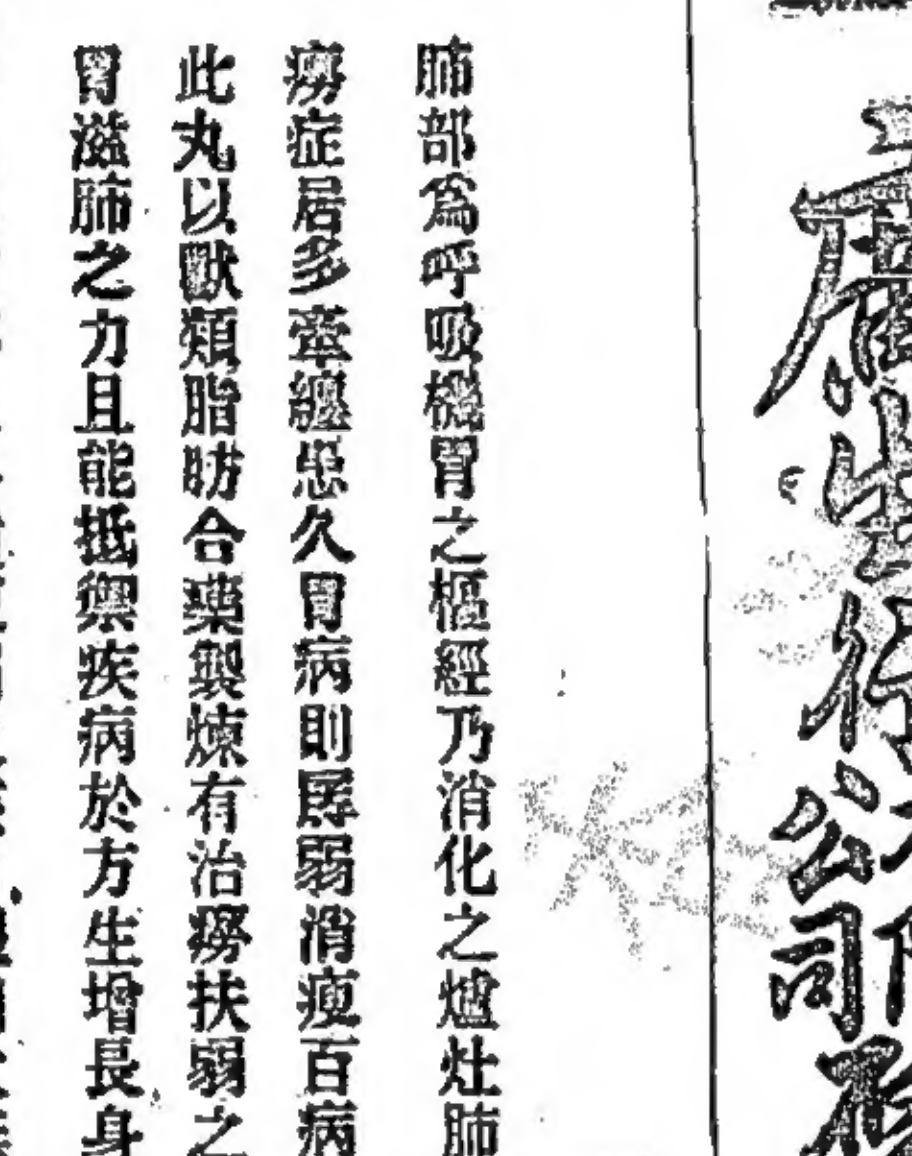 廣生行
公司
肺部為呼吸機胃之樞經乃消化之爐灶肺
癆症居多牽纏患久胃病則孱弱消瘦百病
此丸以獸類脂肪合藥製煉有治癆扶弱之
胃滋肺之力且能抵禦疾病於方生增長身